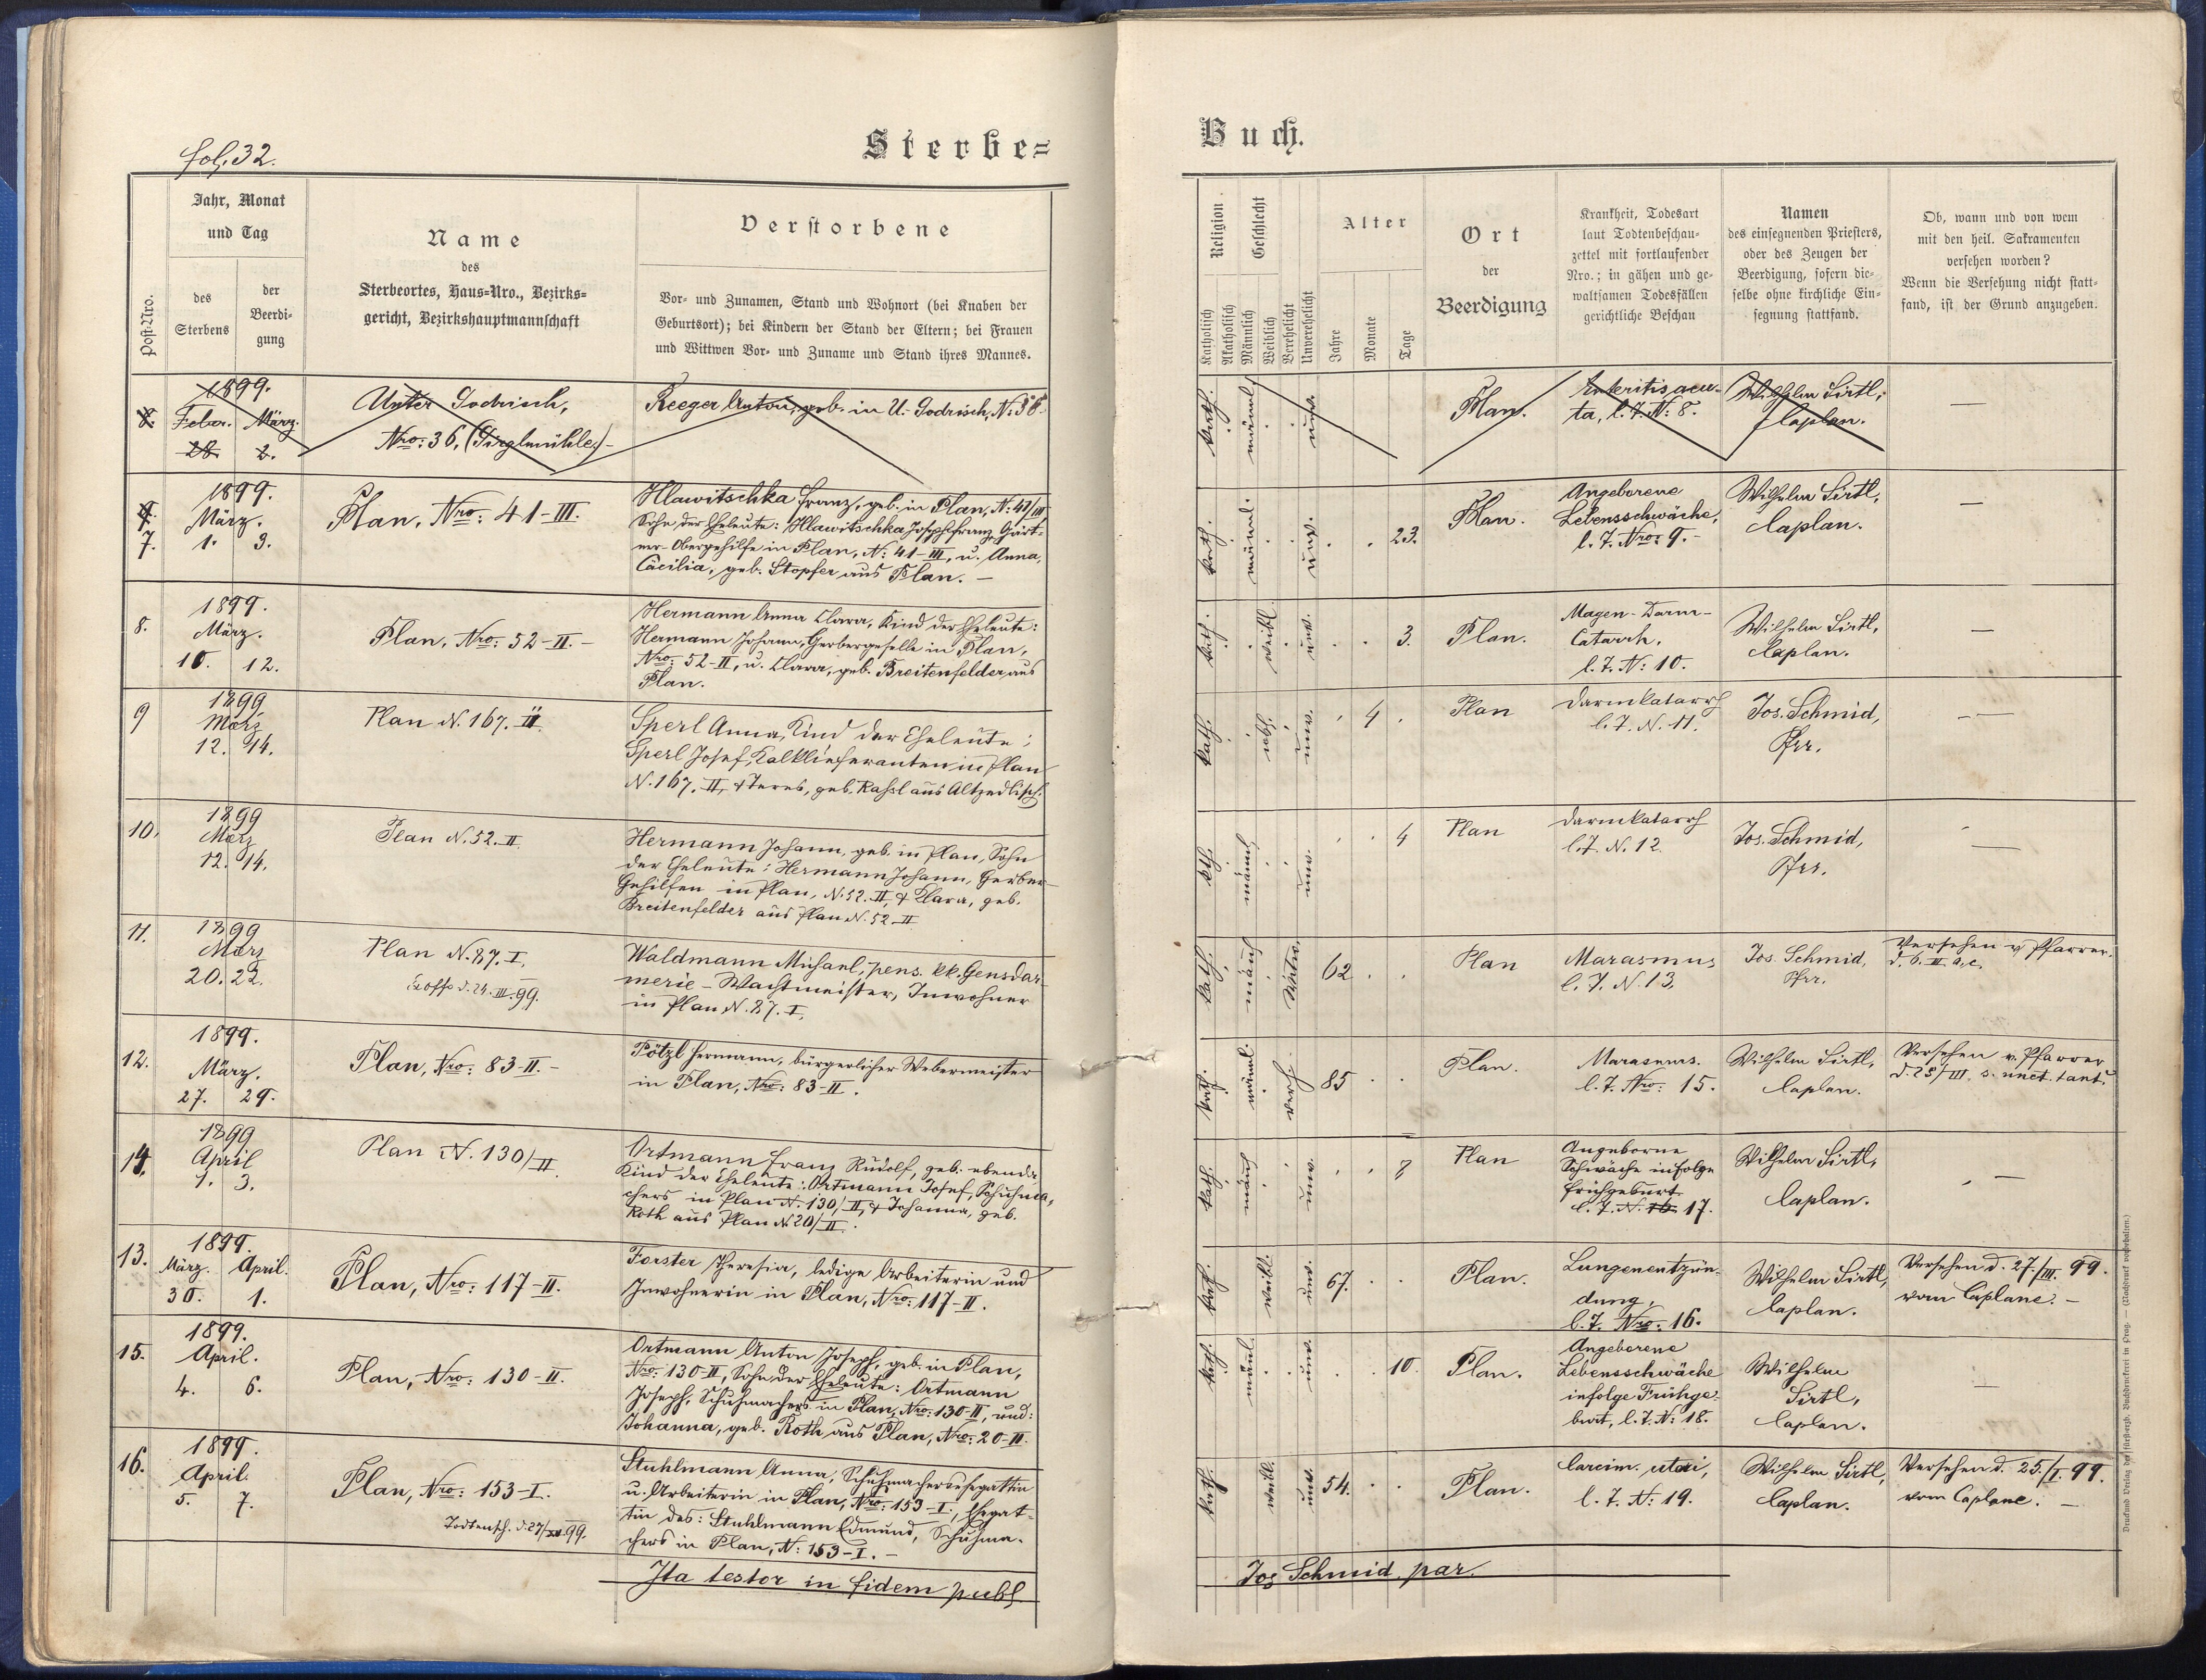 fol. 32.
Sterbe=
Post-Nro.
Jahr, Monat
und Tag
des
Sterbens
der
Beerdi-
gung
Name
des
Sterbeortes, Haus-Nro., Bezirks-
gericht, Bezirkshauptmannschaft
Verstorbene
Vor- und Zunamen, Stand und Wohnort (bei Knaben der
Geburtsort); bei Kindern der Stand der Eltern; bei Frauen
und Wittwen Vor- und Zuname und Stand ihres Mannes.
1899.
Febr. März.
28. 2.
Unter Godrisch,
Nro: 36,
Reeger Anton, geb. in U.-Godrisch, N: 36.
7.
1899.
März.
1. 3.
Plan, Nro: 41-III.
Hlawitschka Franz, geb. in Plan, N: 41/III
Sohn der Eheleute: Hlawitschka Joseph Franz, Gärt-
ner-Obergehilfe in Plan, N: 41-III, u. Anna,
Cäcilia, geb. Stopfer aus Plan. –
8.
1899.
März.
10. 12.
Plan, Nro: 52-II. –
Hermann Anna Clara, Kind der Eheleute:
Hermann Johann, Gerbergeselle in Plan,
Nro: 52-II, u. Clara, geb. Breitenfelder aus
Plan.
9
1899
März
12. 14.
Plan N. 167. II
Sperl Anna, Kind der Eheleute:
Sperl Josef, Kalklieferanten in Plan
N. 167. II, & Teres, geb. Rassl aus Altzedlisch.
10.
1899
März
12. 14.
Plan N. 52. II
Hermann Johann, geb. in Plan, Sohn
der Eheleute: Hermann Johann, Gerber-
Gehilfen in Plan, N. 52. II, & Klara, geb.
Breitenfelder aus Plan N. 52. II
11.
1899
März
20. 22.
Plan N. 87. I.
d. 24. III. 99.
Waldmann Michael, pens. kk. Gensdar-
merie-Wachtmeister, Inwohner
in Plan N. 87. I.
12.
1899.
März.
27. 29.
Plan, Nro: 83-II. –
Pötzl Hermann, bürgerlicher Webermeister
in Plan, Nro: 83-II.
14.
1899
April
1. 3.
Plan N. 130/II
Ortmann Franz Rudolf, geb. ebenda
Kind der Eheleute: Ortmann Josef, Schuhma-
chers in Plan N. 130/II, & Johanna, geb.
Roth aus Plan N 20/II.
13.
1899.
März. April.
30. 1.
Plan, Nro: 117-II.
Forster Theresia, ledige Arbeiterin und
Inwohnerin in Plan, Nro: 117-II.
15.
1899.
April.
4. 6.
Plan, Nro: 130-II.
Ortmann Anton Joseph, geb. in Plan,
Nro: 130-II, Sohn der Eheleute: Ortmann
Joseph, Schuhmachers in Plan, Nro: 130-II, und:
Johanna, geb. Roth aus Plan, Nro: 20-II.
16.
1899.
April.
5. 7.
Plan, Nro: 153-I.
Todtensch. d. 27/XII 99.
Stuhlmann Anna, Schuhmachersegattin
u. Arbeiterin in Plan, Nro: 153-I, Ehegat-
tin des: Stuhlmann Edmund, Schuhma-
chers in Plan, N: 153-I. –
Ita testor in fidem publ.
Buch.
Religion
Katholisch
Akatholisch
Geschlecht
Männlich
Weiblich
Verehelicht
Unverehelicht
Alter
Jahre
Monate
Tage
Ort
der
Beerdigung
Krankheit, Todesart
laut Todtenbeschau-
zettel mit fortlaufender
Nro.; in gähen und ge-
waltsamen Todesfällen
gerichtliche Beschau
Namen
des einsegnenden Priesters,
oder des Zeugen der
Beerdigung, sofern die-
selbe ohne kirchliche Ein-
segnung stattfand.
Ob, wann und von wem
mit den heil. Sakramenten
versehen worden?
Wenn die Versehung nicht statt-
fand, ist der Grund anzugeben.
kath. männl. unv.
Plan.
Enteritis acu-
ta, l. Z. N: 8.
Wilhelm Sirtl,
Caplan.
—
kath. männl. unv. 23.
Plan.
Angeborene
Lebensschwäche,
l. Z. Nro: 9. –
Wilhelm Sirtl,
Caplan.
—
kath. weibl. unv. 3.
Plan.
Magen-Darm-
Catarrh,
l. Z. N: 10.
Wilhelm Sirtl,
Caplan.
—
kath. wbl. unv. 4
Plan
Darmkatarrh
l. Z. N. 11.
Jos. Schmid,
Pfrr.
—
kth. männl unv. 4
Plan
Darmkatarrh
l. Z. N. 12.
Jos. Schmid,
Pfrr.
—
kath. männl 62
Plan
Marasmus
l. Z. N. 13.
Jos. Schmid,
Pfrr.
Versehen v. Pfarrer
d. 6. III. a. c.
kath. männl. verh. 85
Plan.
Marasmus.
l. Z. Nro: 15.
Wilhelm Sirtl,
Caplan.
Versehen v. Pfarrer
d. 25/III. s. unct. tant.
kath. männl unv. 7
Plan
Angeborne
Schwäche infolge
Frühgeburt
l. Z. N. 16 17.
Wilhelm Sirtl,
Caplan.
—
kath. weibl. unv. 67.
Plan.
Lungenentzün-
dung,
l. Z. Nro: 16.
Wilhelm Sirtl,
Caplan.
Versehen d. 27./III. 99.
vom Caplane. –
kath. männl. unv. 10.
Plan.
Angeborene
Lebensschwäche
infolge Frühge-
burt, l. Z. N: 18.
Wilhelm
Sirtl,
Caplan.
—
kath. weibl. unv. 54.
Plan.
Carcim. uteri,
l. Z. N: 19.
Wilhelm Sirtl,
Caplan.
Versehen d. 25./I. 99.
vom Caplane. –
Jos Schmid. par.
Druck und Verlag der fürsterzb. Buchdruckerei in Prag. — (Nachdruck vorbehalten.)